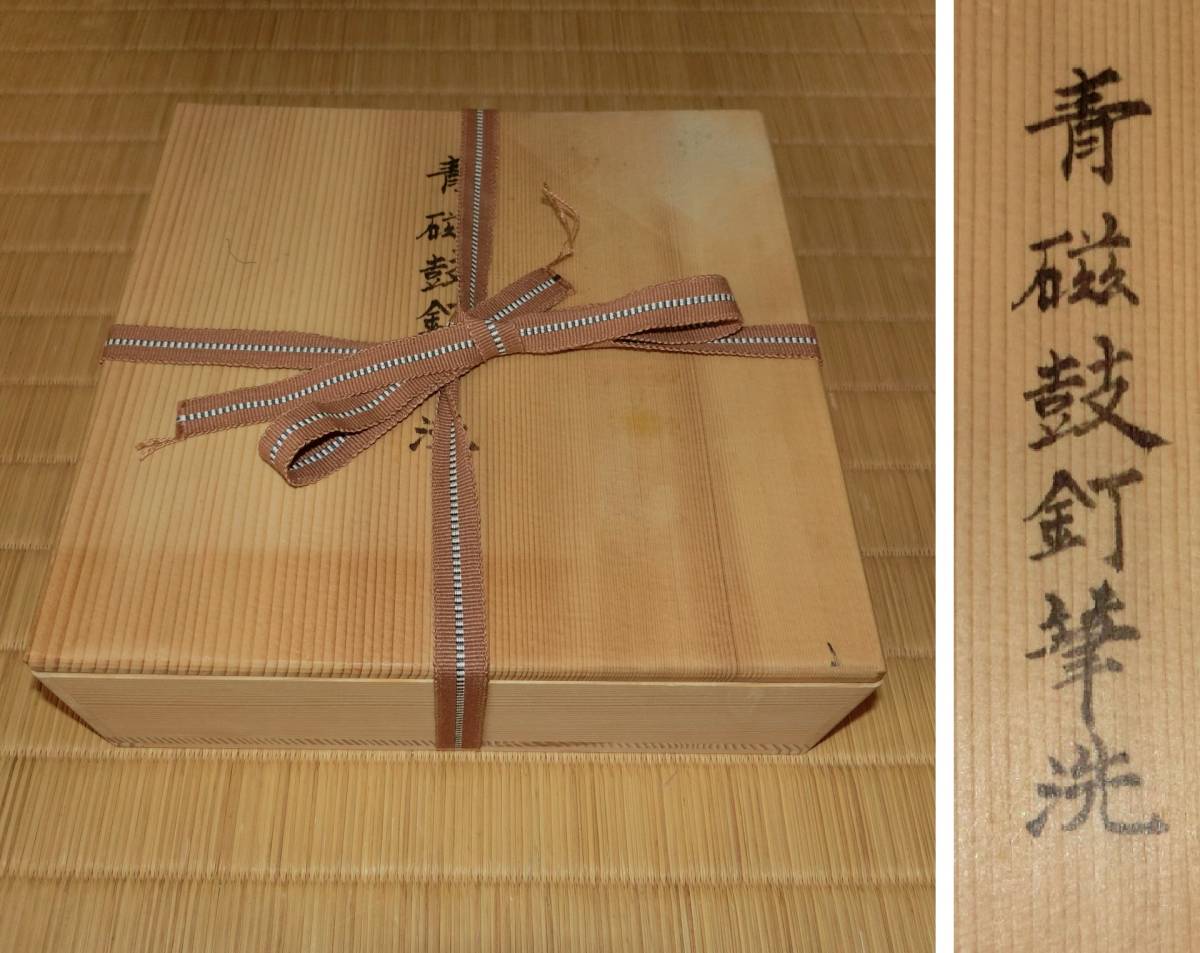 青磁鼓釘洗
青磁鼓釘筆洗